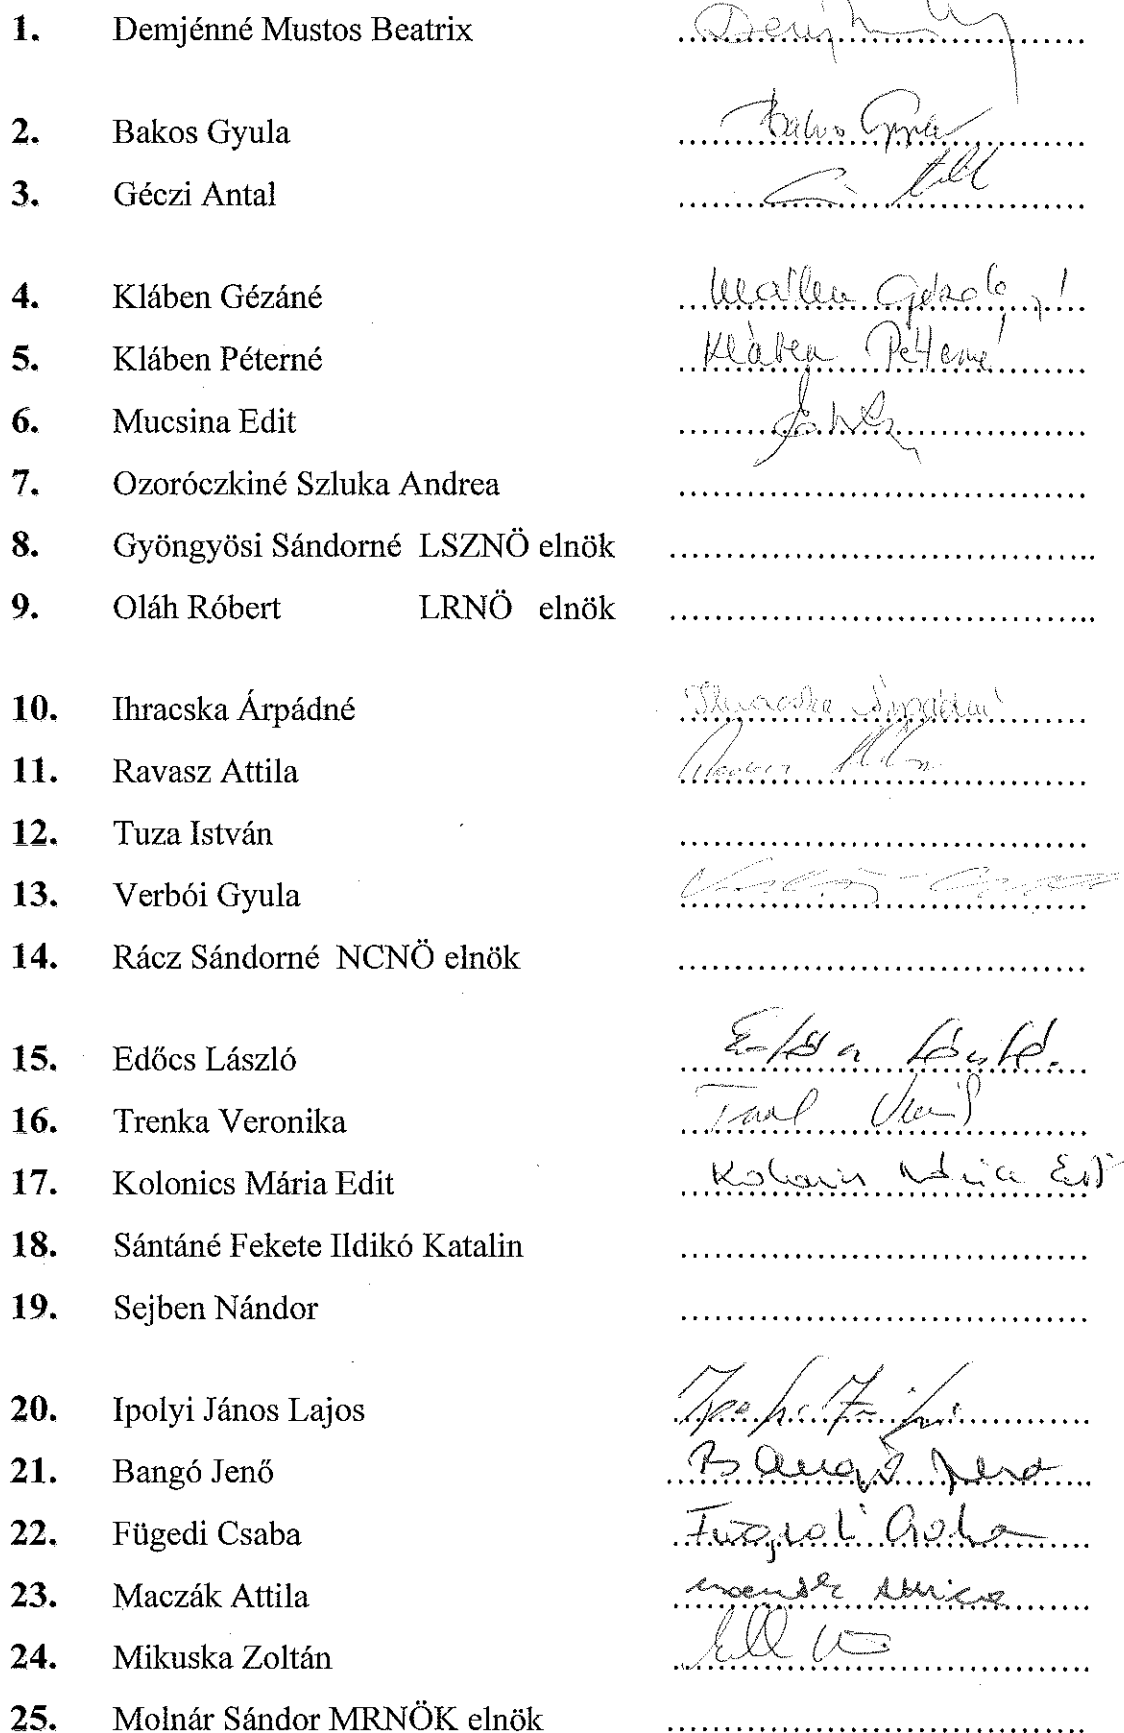 1. Demjénné Mustos Beatrix ..........
2. Bakos Gyula Bakos Gyula
3. Géczi Antal ..........
4. Kláben Gézáné ..........
5. Kláben Péterné Kláben Péterné
6. Mucsina Edit ..........
7. Ozoróczkiné Szluka Andrea ..........
8. Gyöngyösi Sándorné LSZNÖ elnök ..........
9. Oláh Róbert LRNÖ elnök ..........
10. Ihracska Árpádné Ihracska Árpádné
11. Ravasz Attila ..........
12. Tuza István ..........
13. Verbói Gyula ..........
14. Rácz Sándorné NCNÖ elnök ..........
15. Edőcs László ..........
16. Trenka Veronika ..........
17. Kolonics Mária Edit Kolonics Mária Edit
18. Sántáné Fekete Ildikó Katalin ..........
19. Sejben Nándor ..........
20. Ipolyi János Lajos ..........
21. Bangó Jenő Bangó Jenő
22. Fügedi Csaba Fügedi Csaba
23. Maczák Attila ..........
24. Mikuska Zoltán ..........
25. Molnár Sándor MRNÖK elnök ..........